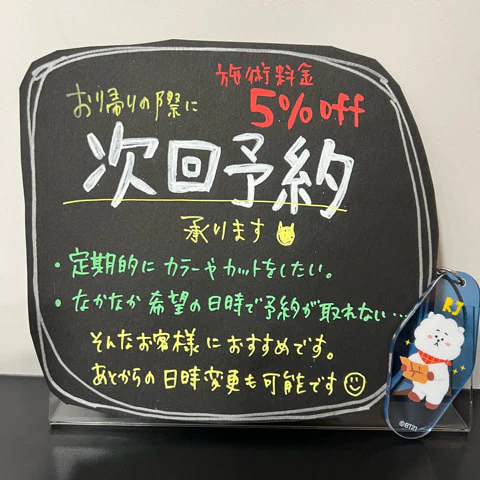 施術料金
5%off
お帰りの際に
次回予約
承ります
・定期的に カラーやカットをしたい。
・なかなか 希望の日時で予約が取れない…
そんなお客様におすすめです。
あとからの日時変更も可能です
RJ
©BT21